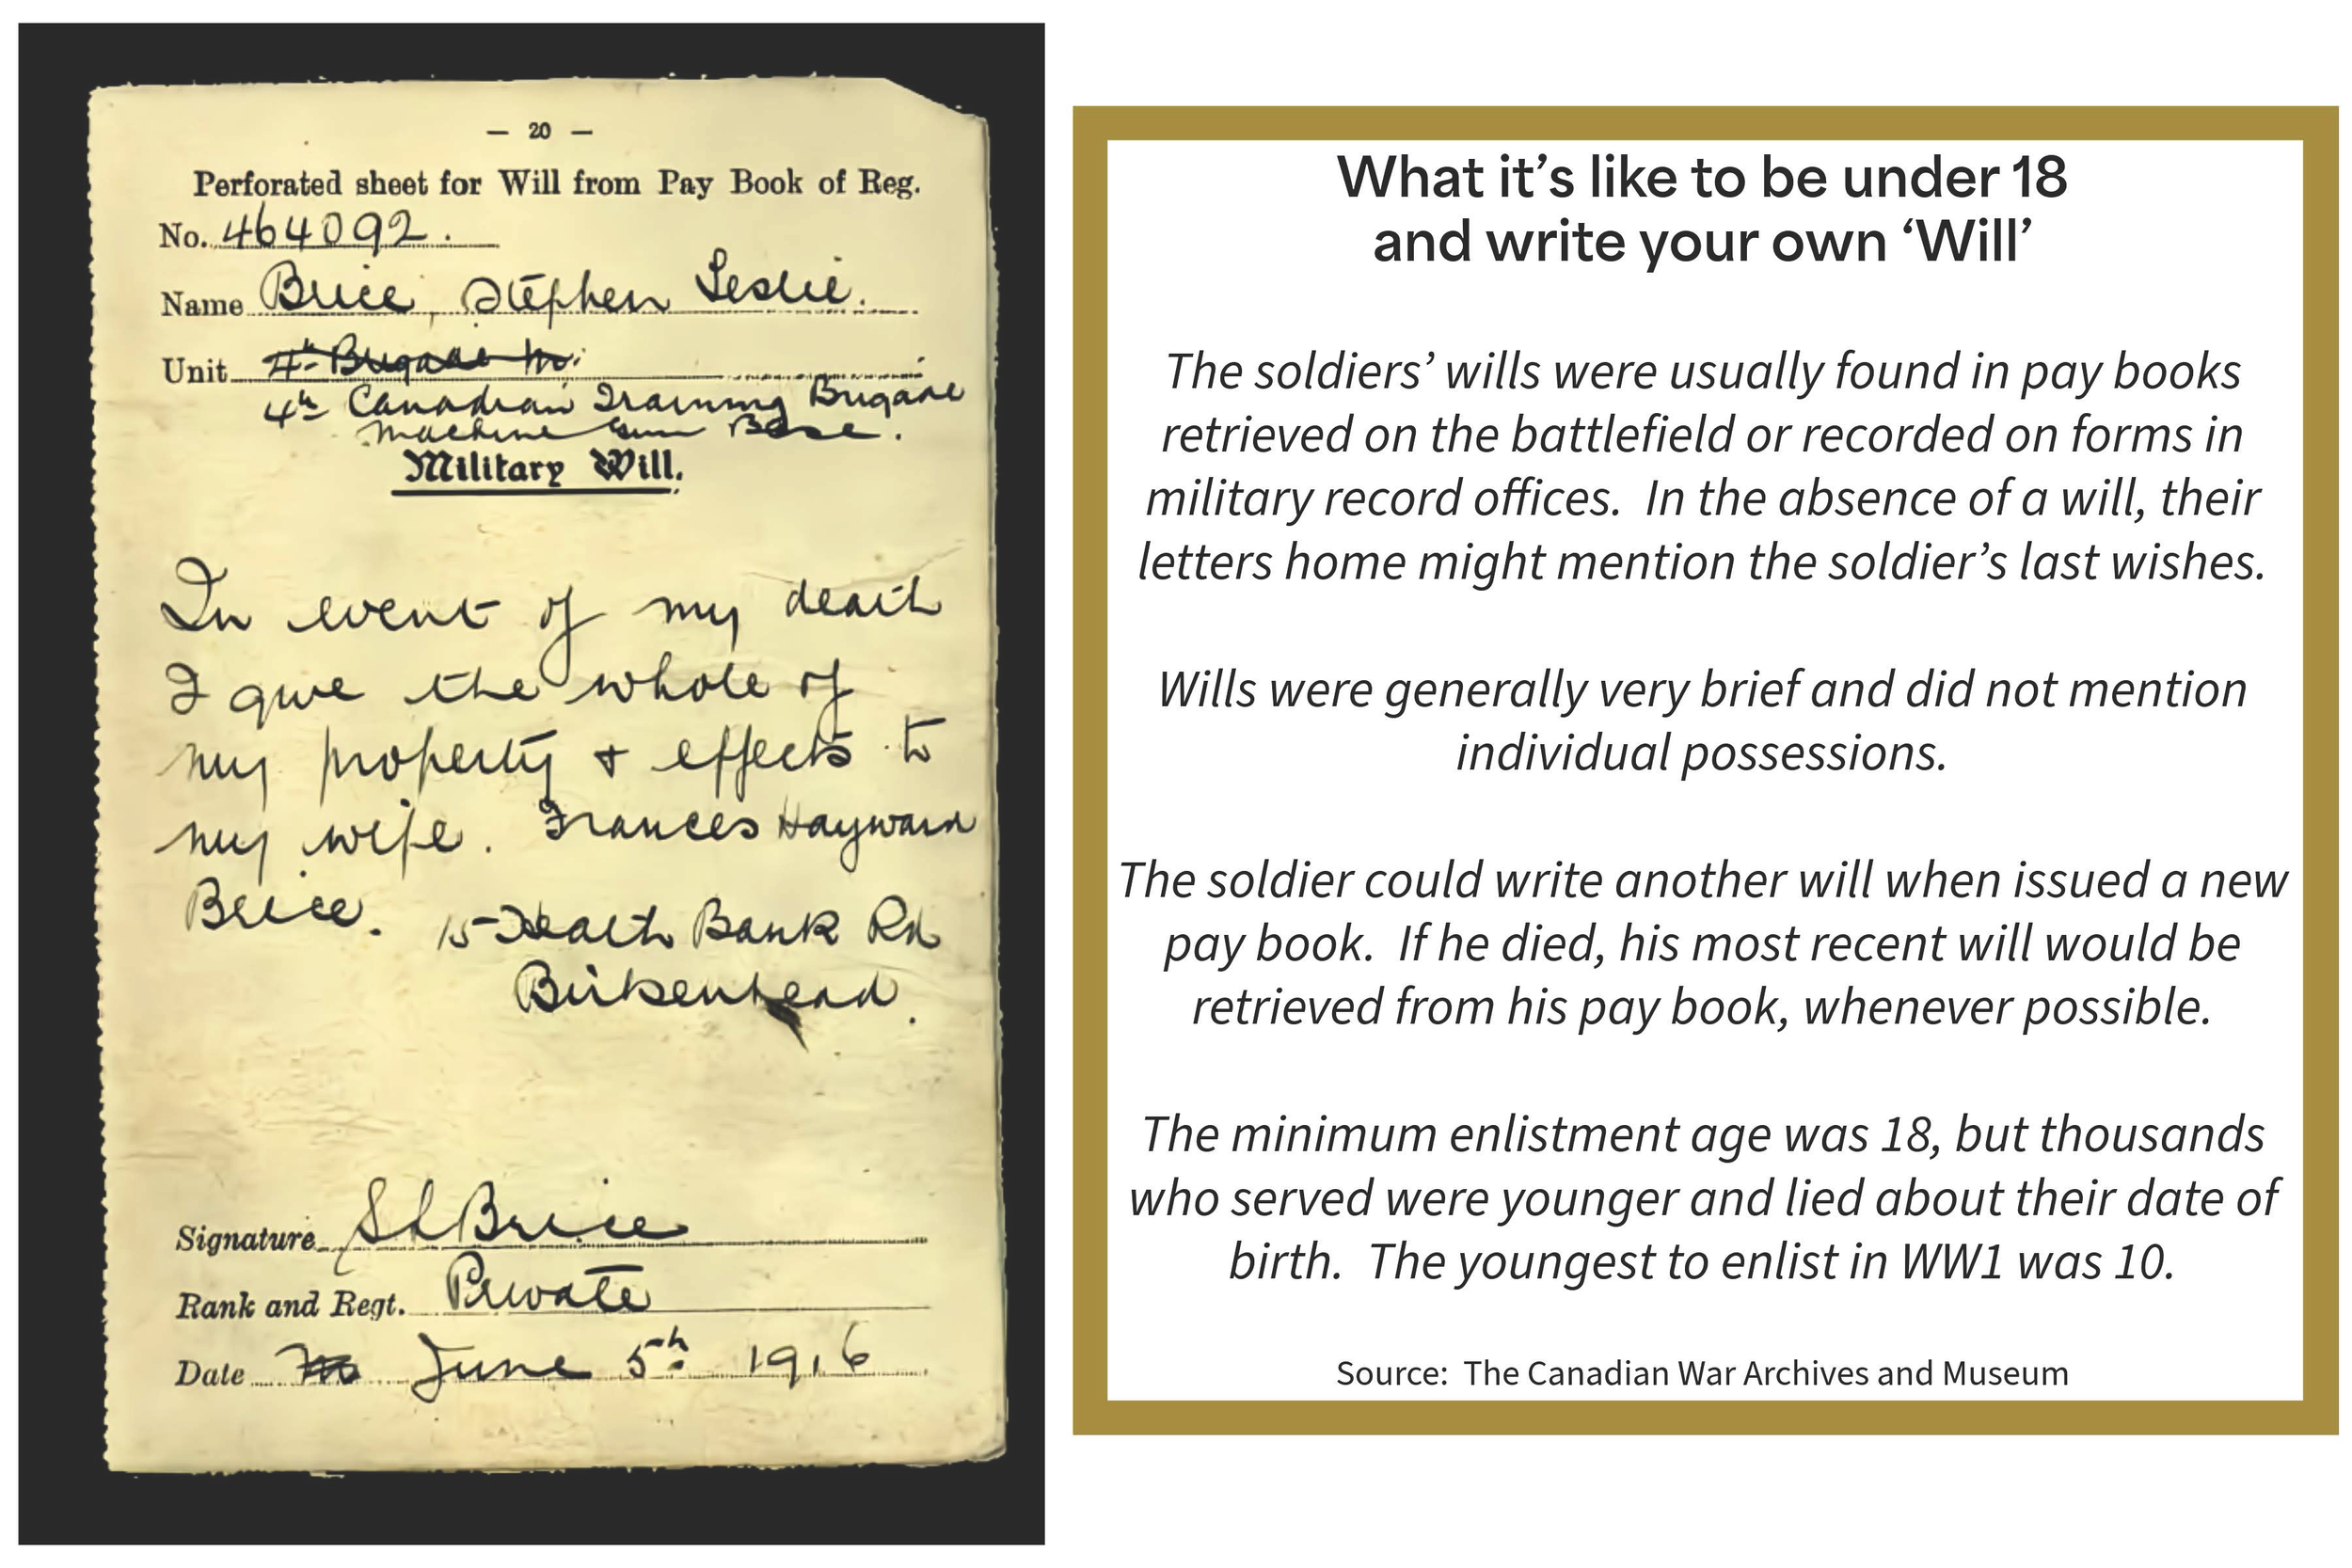 — 20 —
Perforated sheet for Will from Pay Book of Reg.
No. 464092.
Name Brice, Stephen Leslie.
Unit 4th Brigade M.
4th Canadian Training Brigade
Machine Gun Base.
Military Will.
In event of my death
I give the whole of
my property + effects to
my wife. Frances Hayward
Brice. 15 Heath Bank Rd
Birkenhead.
Signature SLBrice
Rank and Regt. Private
Date June 5th 1916
What it’s like to be under 18
and write your own ‘Will’
The soldiers’ wills were usually found in pay books
retrieved on the battlefield or recorded on forms in
military record offices.  In the absence of a will, their
letters home might mention the soldier’s last wishes.
Wills were generally very brief and did not mention
individual possessions.
The soldier could write another will when issued a new
pay book.  If he died, his most recent will would be
retrieved from his pay book, whenever possible.
The minimum enlistment age was 18, but thousands
who served were younger and lied about their date of
birth.  The youngest to enlist in WW1 was 10.
Source:  The Canadian War Archives and Museum